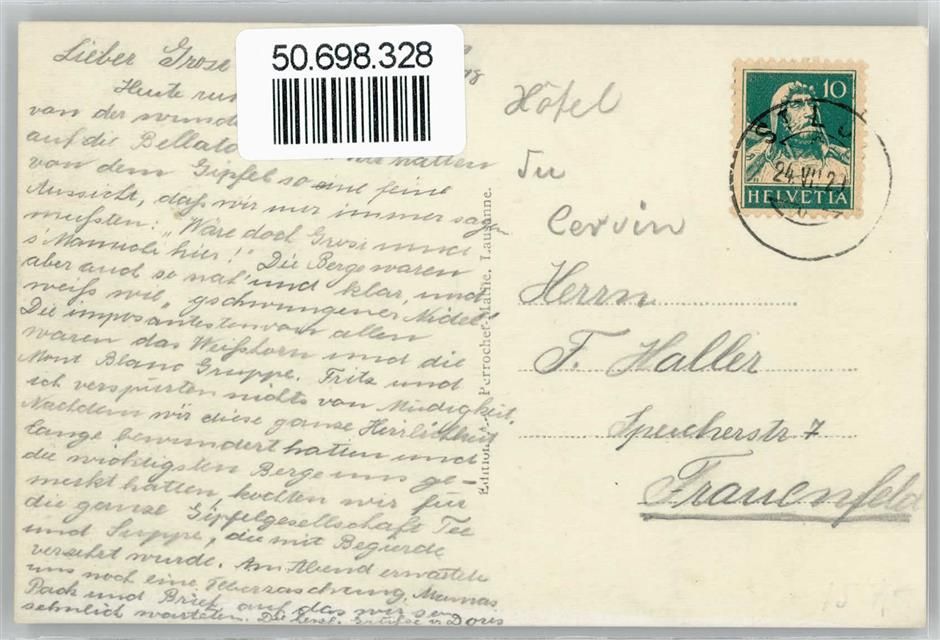 50.698.328
Lieber Grose
Heute
von der wunde
auf die Bellato hatten
von dem Gipfel so eine feine
Aussicht, daß wir nur immer sagen
mußten: "Wäre doch Grosi und
s'Manuele hier!" Die Berge waren
aber auch so nah' und klar, und
weiß wie "gschwungener Nidel"
Die imposantesten von allen
waren das Weißhorn und die
Mont Blanc Gruppe. Fritz und
ich verspürten nichts von Müdigkeit.
Nachdem wir diese ganze Herrlichkeit
lange bewundert hatten und
die wichtigsten Berge uns ge-
merkt hatten, kochten wir für
die ganze Gipfelgesellschaft Tee
und Suppe, die mit Begierde
verzehrt wurde. Am Abend erwartete
uns noch eine Ueberraschung, Mamas
Pack und Brief, auf das wir so
sehnlich warteten. Die herzl. Grüsse v. Doris
Edition Perrochet-Matile, Lausanne.
Hôtel
du
Cervin
Herrn
F. Haller
Speicherstr 7
Frauenfeld
10
HELVETIA
ST. LU
24.VII.2